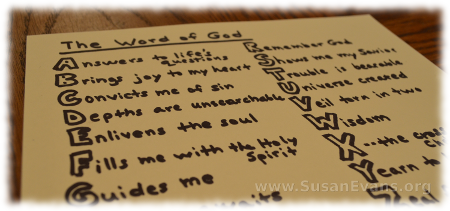 The Word of God
Answers to life's
questions
Brings joy to my heart
Convicts me of sin
Depths are unsearchable
Enlivens the soul
Fills me with the Holy
Spirit
Guides me
awaits
Remember God
Shows me my Savior
Trouble is bearable
Universe created
Veil torn in two
Wisdom
X...the cross
Yearn to
Zeal
www.SusanEvans.org